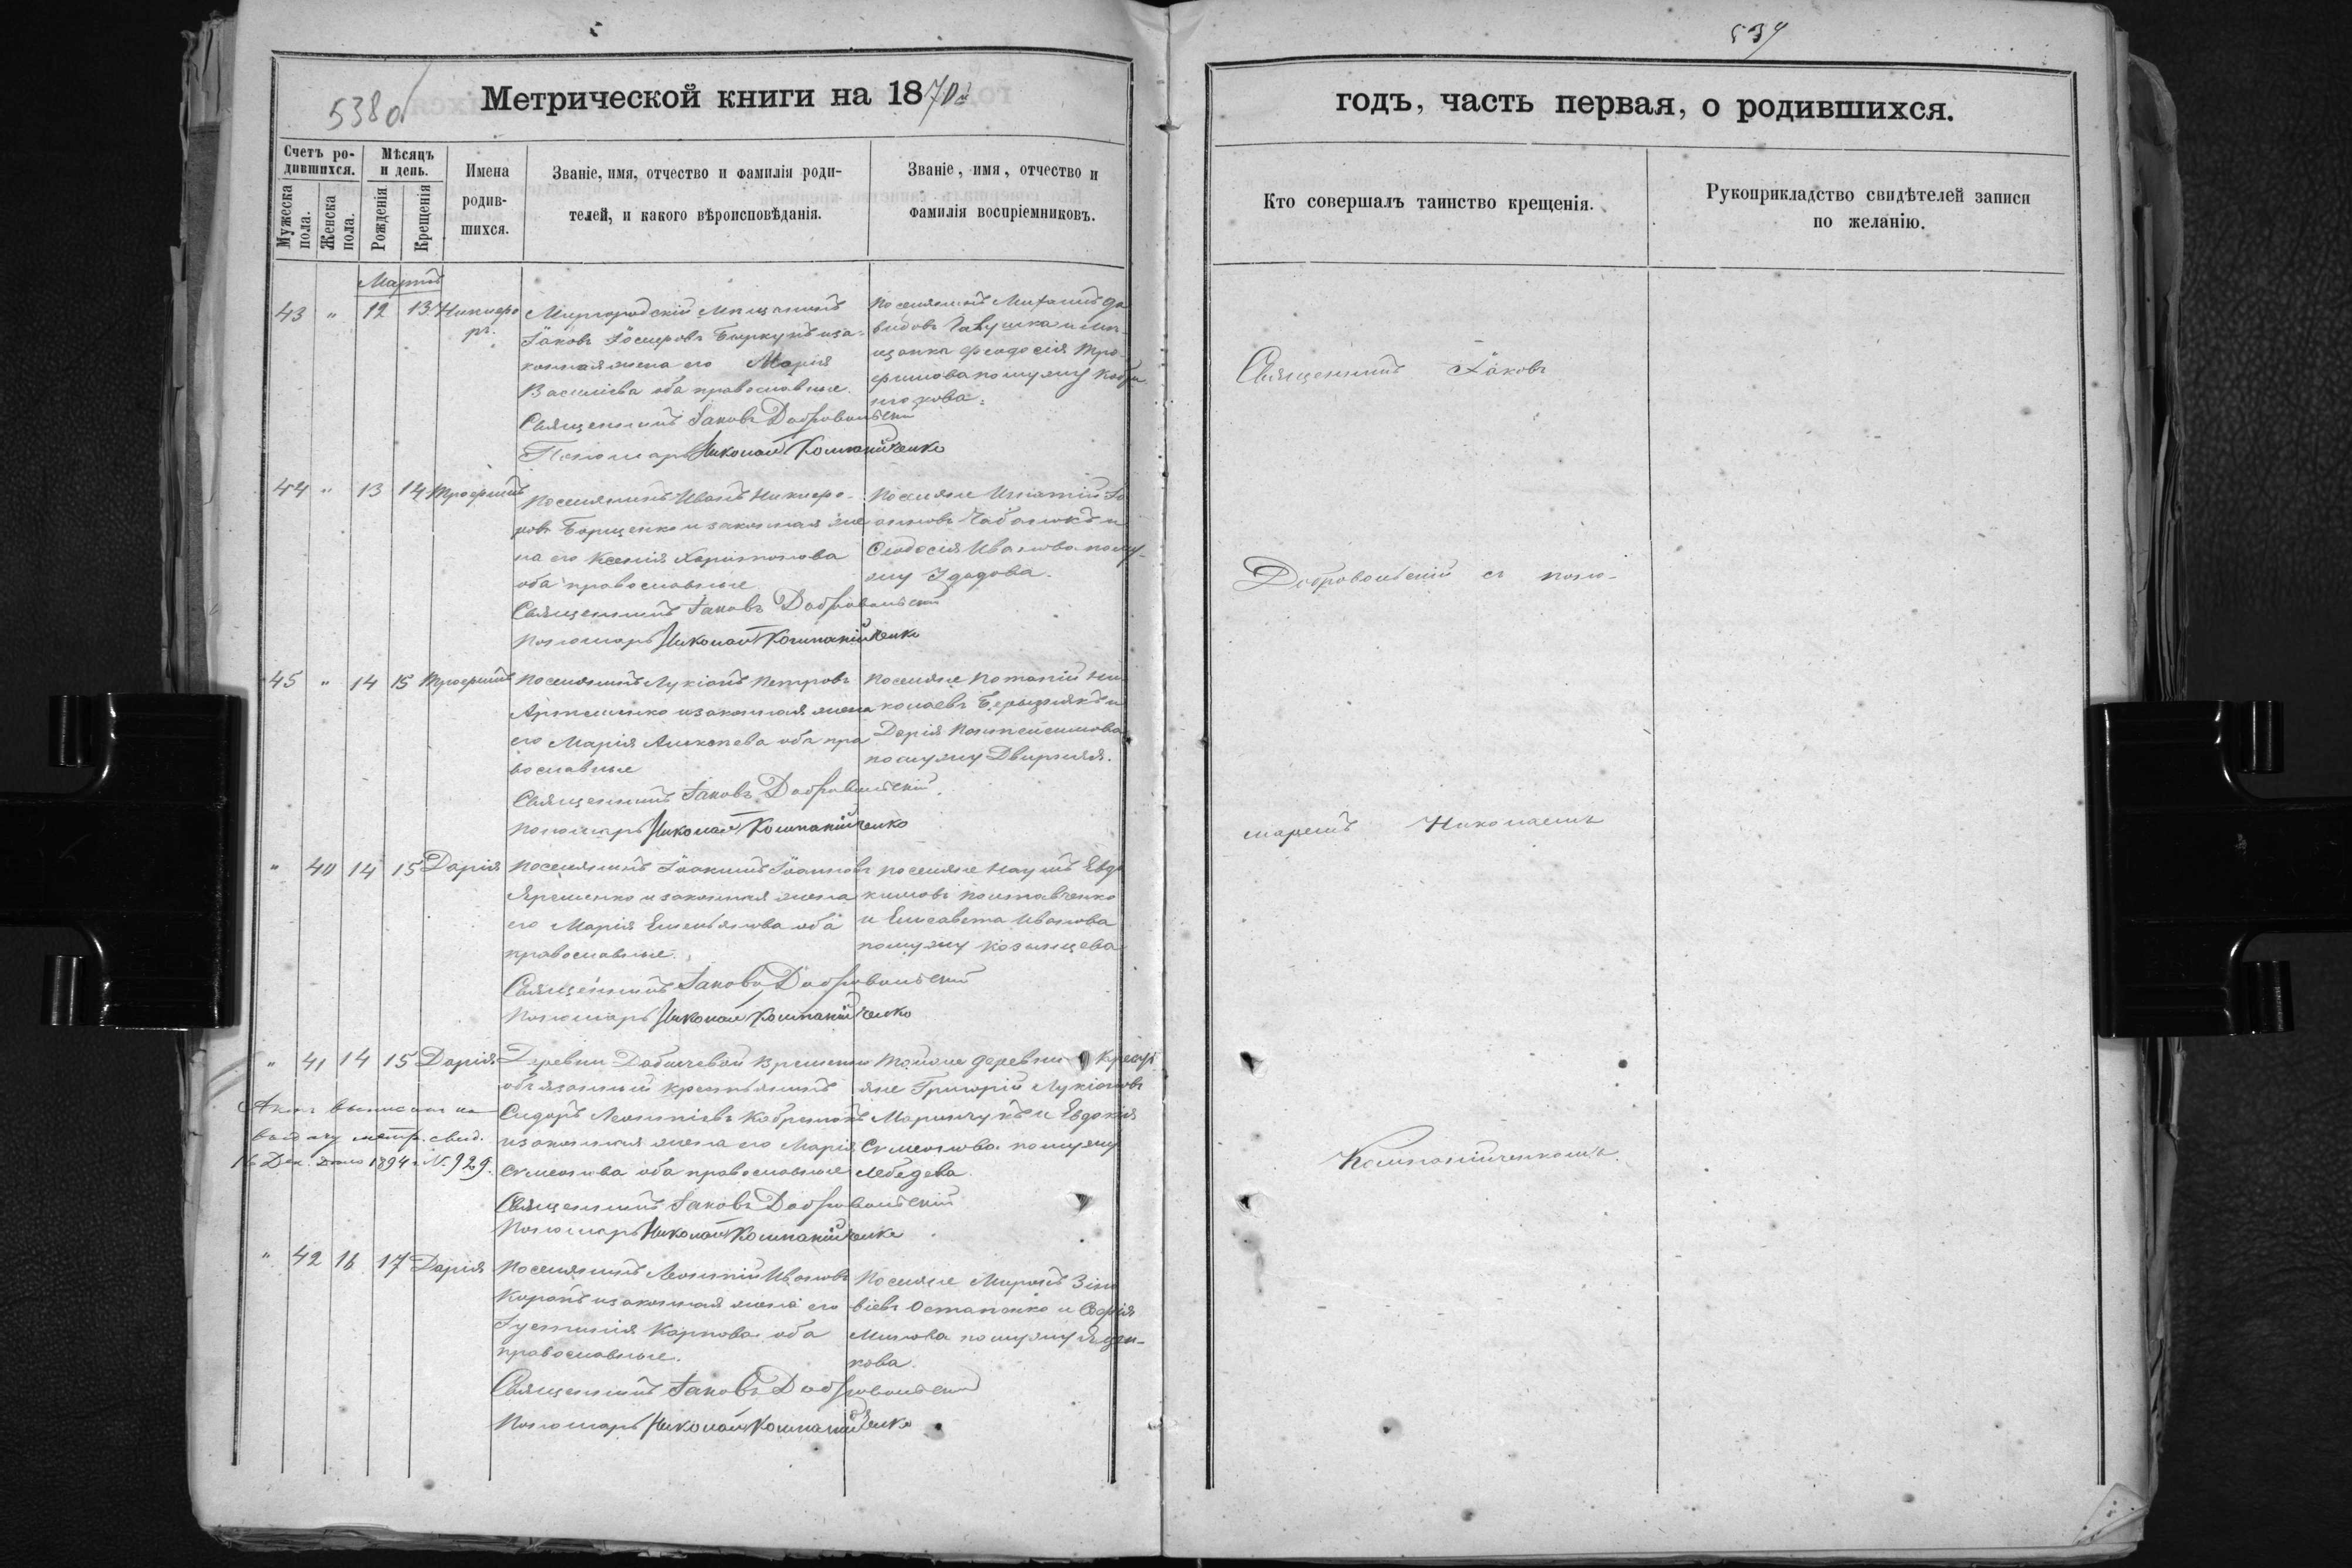 538 об
Метрической книги на 1870й
Счетъ родившихся.
Мужеска пола.
Женска пола.
Мѣсяцъ и день.
Рожденія
Крещенія
Имена родившихся.
Званіе, имя, отчество и фамилія родителей, и какого вѣроисповѣданія.
Званіе, имя, отчество и фамилія воспріемниковъ.
Мартъ
43 " 12 13 Никифоръ
Миргородскій Мѣщанинъ
Іаковъ Іосифовъ и за-
конная жена его Марія
Василіева оба православные.
Священникъ Іаковъ Добровольскій
Пономарь Николай Компанійченко
Поселянинъ Михаилъ Да
видовъ и мѣ-
щанка Феодосія Тро-
фимова по мужу
44 " 13 14 Трофимъ
Поселянинъ Иванъ Никифо-
ровъ Борщенко и законная же
на его Ксенія Харитонова
оба православные
Священникъ Іаковъ Добровольскій
Пономарь Николай Компанійченко
Поселяне Игнатій Іо
анновъ Чабанюкъ и
Феодосія Иванова по му-
жу
45 " 14 15 Трофимъ
Поселянинъ Лукіанъ Петровъ
и законная жена
его Марія Алексѣева оба пра
вославные
Священникъ Іаковъ Добровольскій.
Пономарь Николай Компанійченко
Поселяне Потапій Ни
колаевъ и
Дарія Пантелеимонова
по мужу Двирняя.
" 40 14 15 Дарія
Поселянинъ Іоакимъ Іоанновъ
Яременко и законная жена
его Марія Емельянова оба
православные.
Священникъ Іаковъ Добровольскій
Пономарь Николай Компанійченко
Поселяне Наумъ Евдо
кимовъ Полтавченко
и Елисавета Иванова
по мужу
" 41 14 15 Дарія
Деревни временно
обязанный крестьянинъ
Сидоръ Леонтіевъ
и законная жена его Марія
Симеонова оба православные
Священникъ Іаковъ Добровольскій
Пономарь Николай Компанійченко
Той же деревни крестья
яне Григорій Лукіановъ
Маринчукъ и Евдокія
Симеонова по мужу
Лебедева.
Актъ выписанъ на
выдачу метр. свид.
16 Дек. 1894 г. № 929.
" 42 16 17 Дарія
Поселянинъ Леонтій Ивановъ
и законная жена его
Іустинія Карпова оба
православные.
Священникъ Іаковъ Добровольскій
Пономарь Николай Компанійченко
Поселяне Миронъ Зіно
віевъ Остапенко и
по мужу
кова.
539
годъ, часть первая, о родившихся.
Кто совершалъ таинство крещенія.
Рукоприкладство свидѣтелей записи по желанію.
Священникъ Іаковъ
Добровольскій съ поно-
маремъ Николаемъ
Компанійченкомъ.